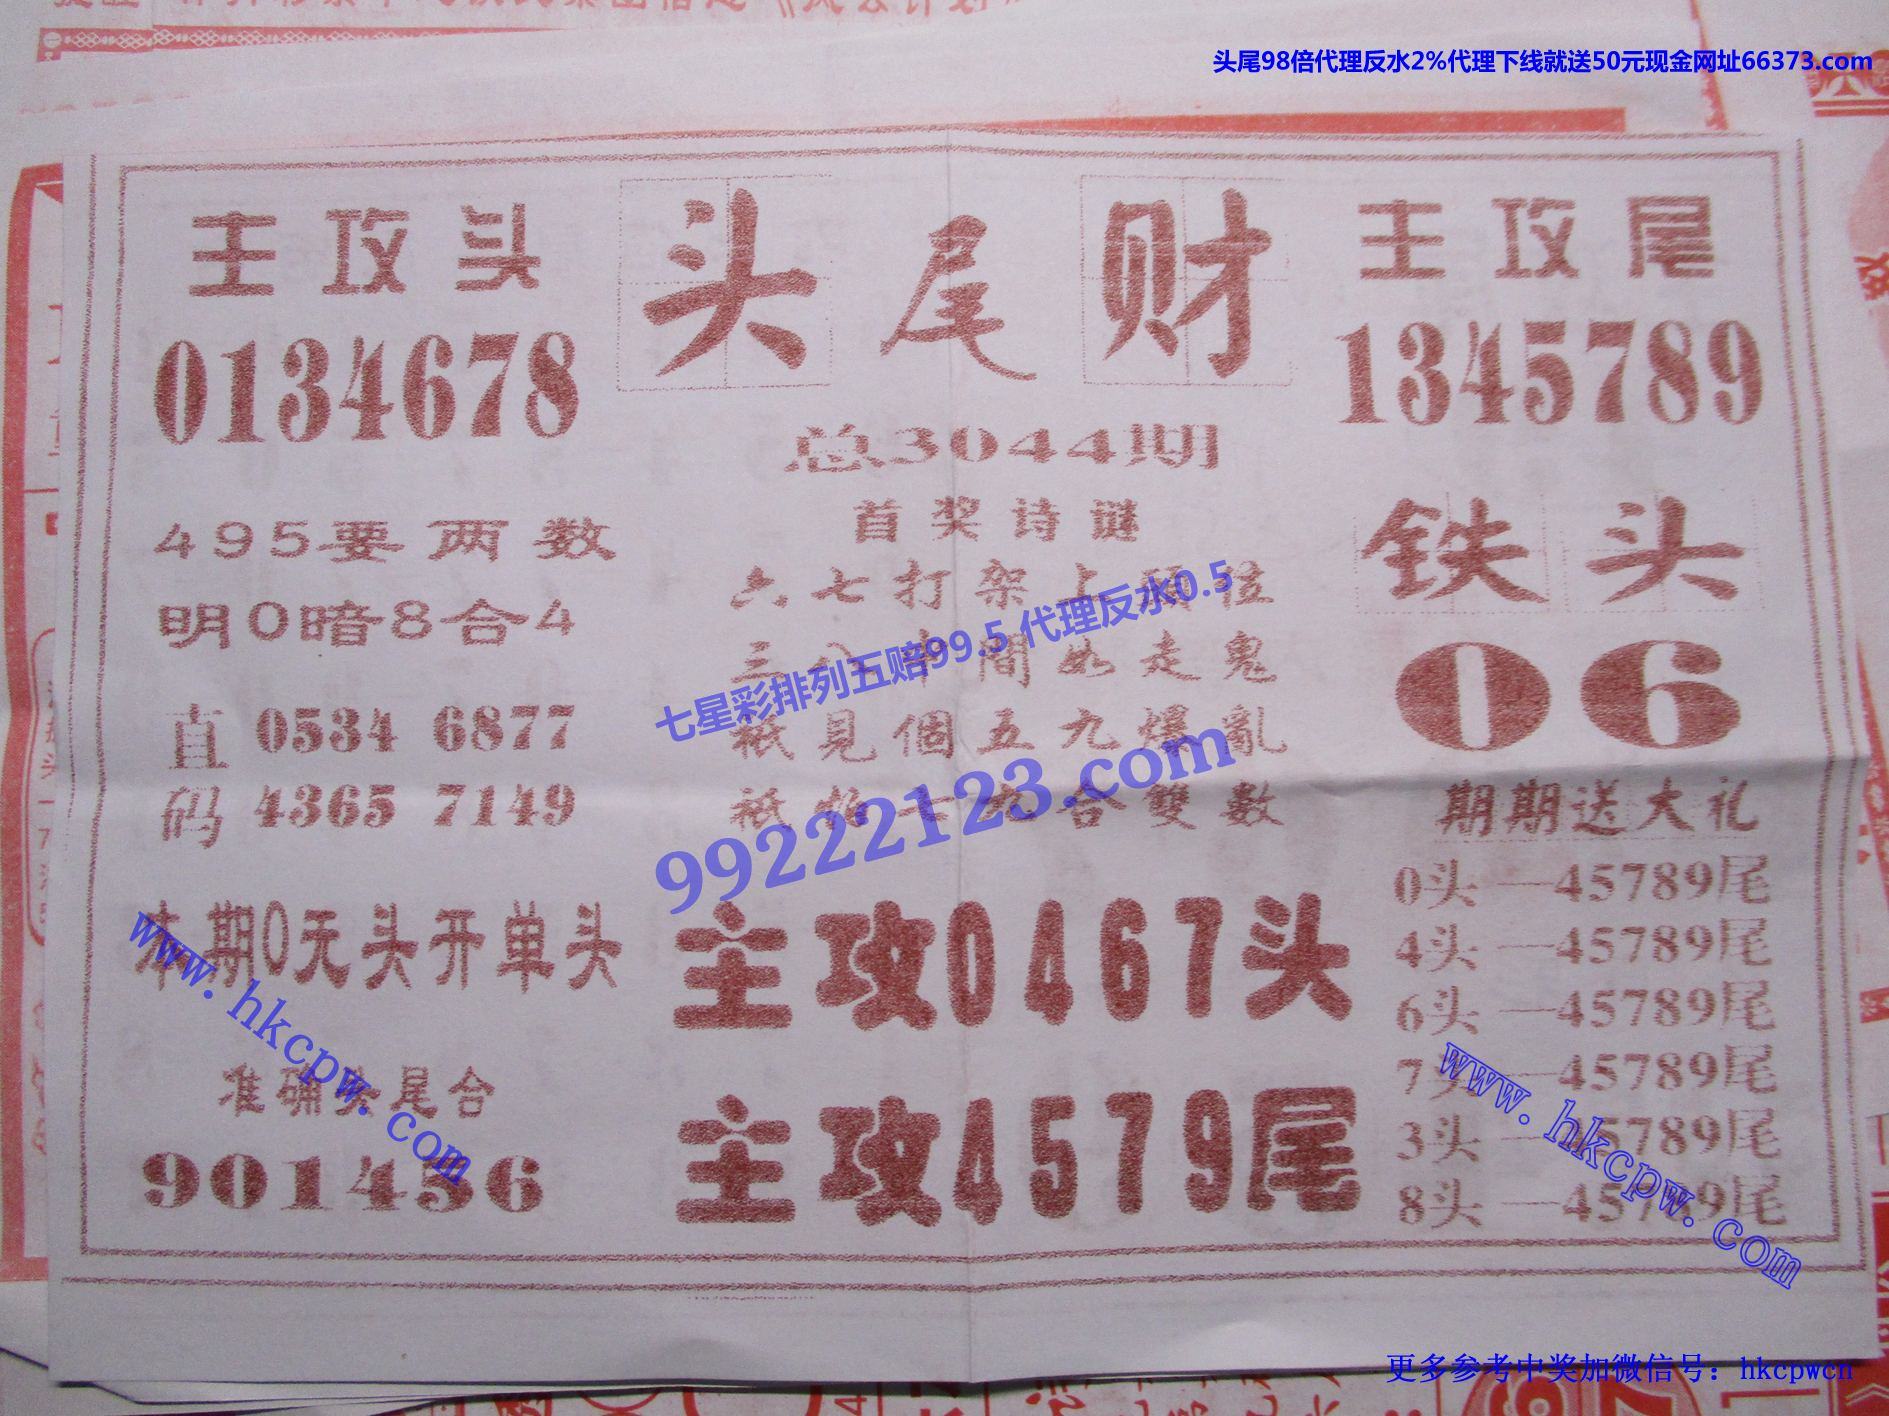 头尾98倍代理反水2%代理下线就送50元现金网址66373.com
主攻头
0134678
头尾财
主攻尾
1345789
总3044期
首奖诗谜
六七打架上頭位
三八中間如走鬼
祇見個五九爆亂
祇 合雙數
七星彩排列五赔99.5 代理反水0.5
99222123.com
495要两数
明0暗8合4
直码
0534 6877
4365 7149
铁头
06
期期送大礼
0头—45789尾
4头—45789尾
6头—45789尾
7头—45789尾
3头—45789尾
8头—45789尾
本期0无头开单头
准确头尾合
901456
主攻0467头
主攻4579尾
www.hkcpw.com
www.hkcpw.com
更多参考中奖加微信号：hkcpwcn